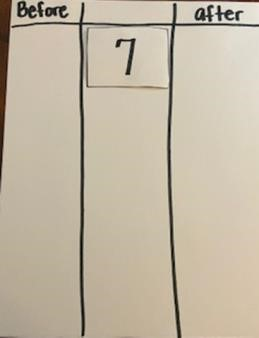 Before after
7